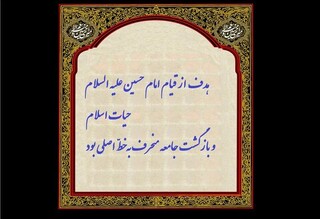 هدف از قیام امام حسین علیه السلام
حیات اسلام
و بازگشت جامعه منحرف به خط اصلی بود